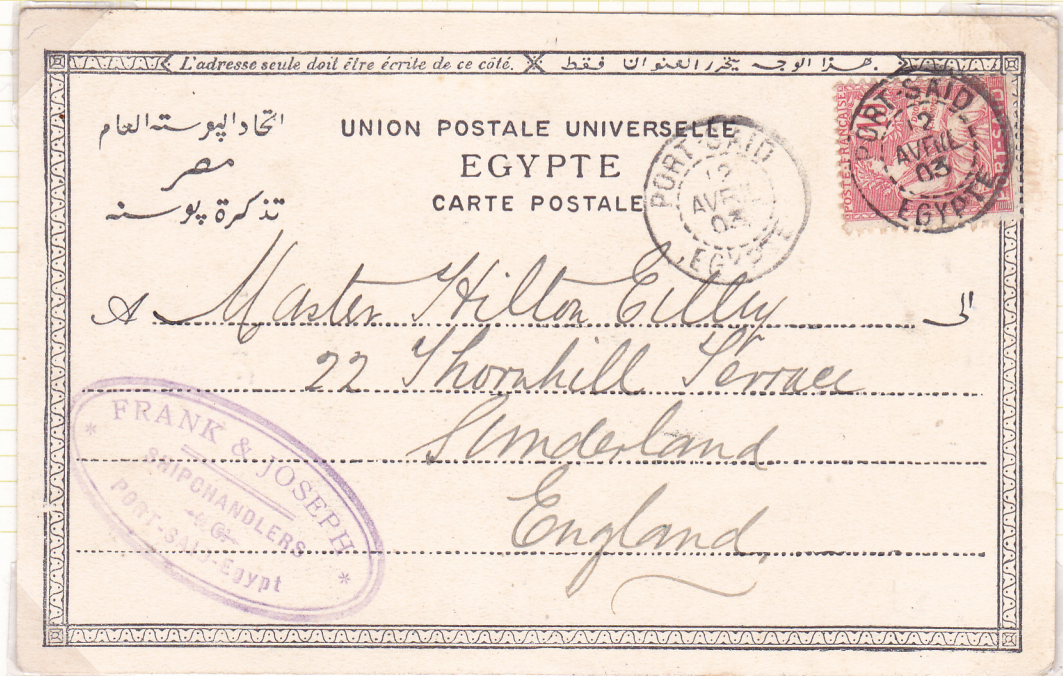 L'adresse seule doit être écrite de ce côté. هذا الوجه يحرر العنوان فقط.
اتحاد البوسته العام
مصر
تذكرة بوسته
UNION POSTALE UNIVERSELLE
EGYPTE
CARTE POSTALE
PORT-SAID
12
AVRIL
03
EGYPTE
POSTE FRANÇAISE
10
PORT-SAID
PORT-SAID
12
AVRIL
03
EGYPTE
A Master Hilton الى
22 Thornhill Terrace
Sunderland
England,
FRANK & JOSEPH
SHIPCHANDLERS
PORT-SAID-Egypt